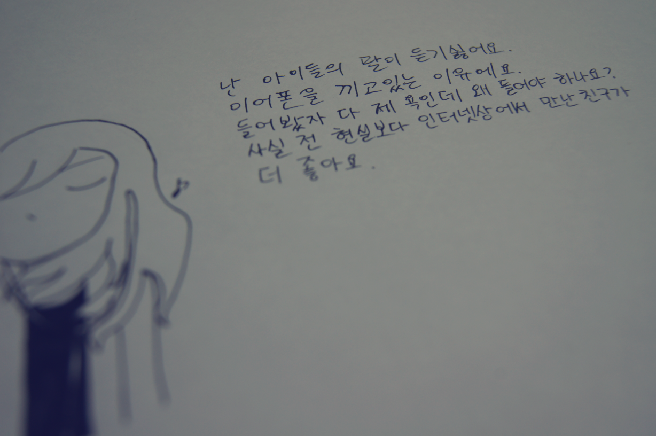 난 아이들의 팔이 듣기싫어요.
이어폰을 끼고있는 이유에요.
들어봤자 다 제 욕인데 왜 들어야 하나요?
사실 전 현실보다 인터넷상에서 만난 친구가
더 좋아요.